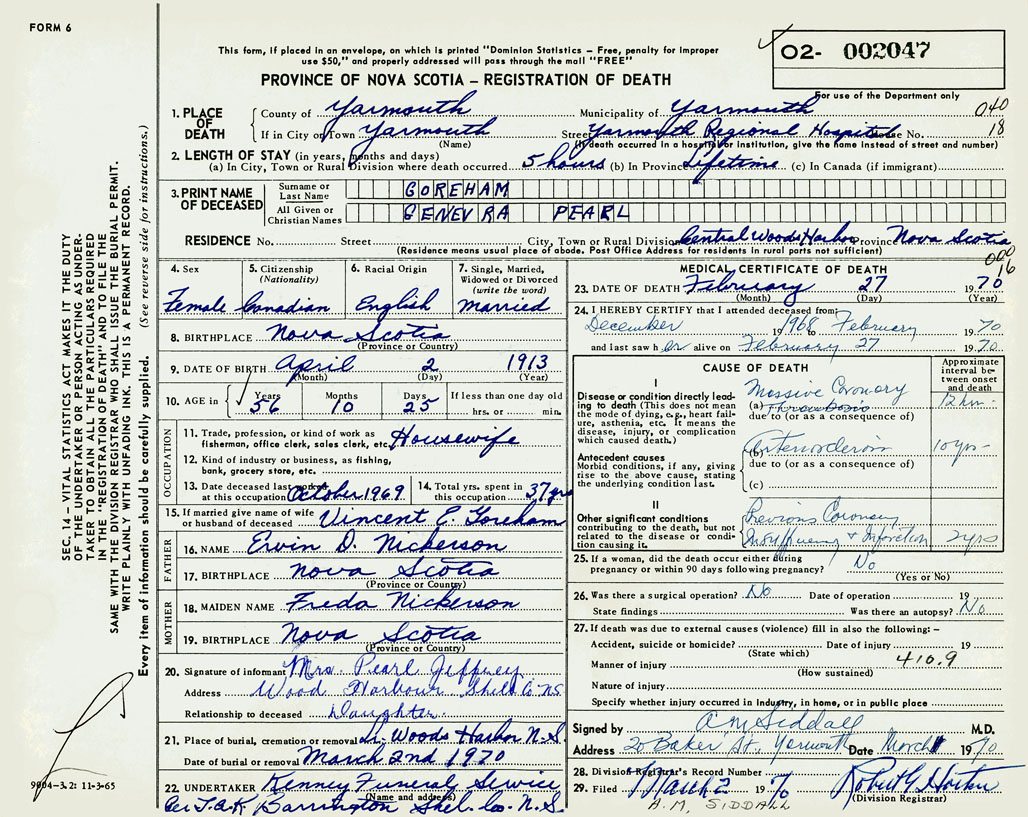 FORM 6
This form, if placed in an envelope, on which is printed "Dominion Statistics - Free, penalty for improper
use $50," and properly addressed will pass through the mail "FREE"
PROVINCE OF NOVA SCOTIA – REGISTRATION OF DEATH
O2- 002047
For use of the Department only
040
18
1. PLACE OF DEATH
County of Yarmouth Municipality of Yarmouth
If in City or Town Yarmouth Street Yarmouth Regional Hospital House No.
(Name) (If death occurred in a hospital or institution, give the name instead of street and number)
2. LENGTH OF STAY (in years, months and days)
(a) In City, Town or Rural Division where death occurred 5 hours (b) In Province Lifetime (c) In Canada (if immigrant)
3. PRINT NAME OF DECEASED
Surname or Last Name GOREHAM
All Given or Christian Names GENEVRA PEARL
RESIDENCE No. Street City, Town or Rural Division Central Woods Harbor Province Nova Scotia
(Residence means usual place of abode. Post Office Address for residents in rural parts not sufficient)
000
16
4. Sex 5. Citizenship (Nationality) 6. Racial Origin 7. Single, Married, Widowed or Divorced (write the word)
Female Canadian English Married
8. BIRTHPLACE Nova Scotia
(Province or Country)
9. DATE OF BIRTH April 2 1913
(Month) (Day) (Year)
10. AGE in Years Months Days If less than one day old
56 10 25 hrs. or min.
OCCUPATION
11. Trade, profession, or kind of work as fisherman, office clerk, sales clerk, etc. Housewife
12. Kind of industry or business, as fishing, bank, grocery store, etc.
13. Date deceased last worked at this occupation October 1969 14. Total yrs. spent in this occupation 37 yrs
15. If married give name of wife or husband of deceased Vincent E. Goreham
FATHER
16. NAME Ervin D. Nickerson
17. BIRTHPLACE Nova Scotia
(Province or Country)
MOTHER
18. MAIDEN NAME Freda Nickerson
19. BIRTHPLACE Nova Scotia
(Province or Country)
20. Signature of informant Mrs. Pearl Jeffrey
Address Wood Harbour Shel. Co. N.S.
Relationship to deceased Daughter.
21. Place of burial, cremation or removal Woods Harbor N.S.
Date of burial or removal March 2nd 1970
22. UNDERTAKER Kenney Funeral Service
(Name and address)
Barrington Shel. Co. N.S.
MEDICAL CERTIFICATE OF DEATH
23. DATE OF DEATH February 27 1970
(Month) (Day) (Year)
24. I HEREBY CERTIFY that I attended deceased from:
December 1968 to February 1970
and last saw her alive on February 27 1970
CAUSE OF DEATH
Approximate interval between onset and death
I
Disease or condition directly leading to death (This does not mean the mode of dying, e.g., heart failure, asthenia, etc. It means the disease, injury, or complication which caused death.)
Massive Coronary
(a) Thrombosis 12 hrs.
due to (or as a consequence of)
Antecedent causes
Morbid conditions, if any, giving rise to the above cause, stating the underlying condition last.
(b) 10 yrs
due to (or as a consequence of)
(c)
II
Other significant conditions
contributing to the death, but not related to the disease or condition causing it.
Previous Coronary
Insufficiency & Infarction 2 yrs
25. If a woman, did the death occur either during pregnancy or within 90 days following pregnancy? No
(Yes or No)
26. Was there a surgical operation? No Date of operation 19
State findings Was there an autopsy? No
27. If death was due to external causes (violence) fill in also the following: –
Accident, suicide or homicide? Date of injury 19
(State which)
Manner of injury 410.9
(How sustained)
Nature of injury
Specify whether injury occurred in Industry, in home, or in public place
Signed by A M Siddall M.D.
Address 20 Baker St., Yarmouth Date March 1 1970
28. Division Registrar's Record Number
29. Filed March 2 1970 Robert G Horton
(Division Registrar)
A.M. SIDDALL
SEC. 14 – VITAL STATISTICS ACT MAKES IT THE DUTY
OF THE UNDERTAKER OR PERSON ACTING AS UNDER-
TAKER TO OBTAIN ALL THE PARTICULARS REQUIRED
IN THE "REGISTRATION OF DEATH" AND TO FILE THE
SAME WITH THE DIVISION REGISTRAR WHO SHALL ISSUE THE BURIAL PERMIT.
WRITE PLAINLY WITH UNFADING INK. THIS IS A PERMANENT RECORD.
Every item of information should be carefully supplied. (See reverse side for instructions.)
9004-3.2: 11-3-65